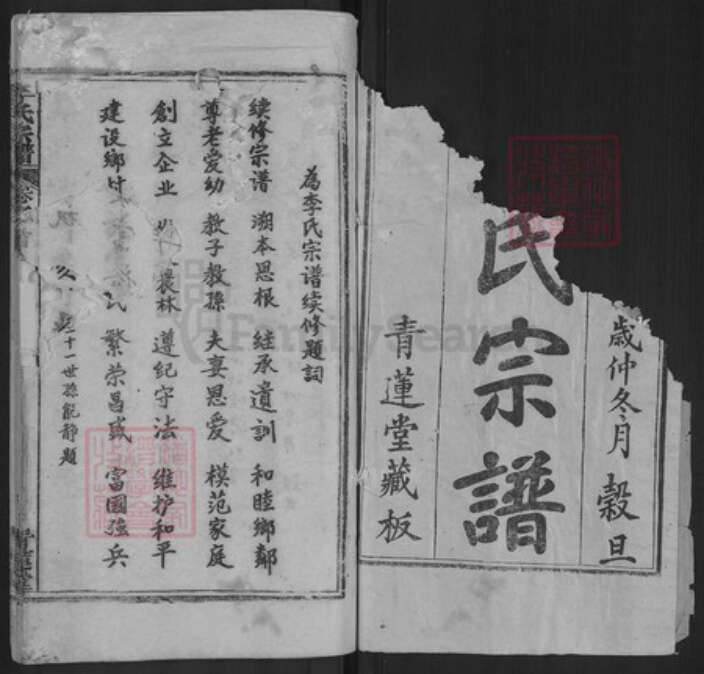 歲仲冬月 穀旦
氏宗譜
青蓮堂藏板
為李氏宗谱续修題詞
续修宗谱 溯本思根 继承遺訓 和睦鄉鄰
尊老爱幼 教子教孫 夫妻恩爱 模范家庭
創立企业 農林 遵纪守法 维护和平
建设鄉 民 繁荣昌盛 富國強兵
二十一世孫能静題
氏宗譜
FamilySearch